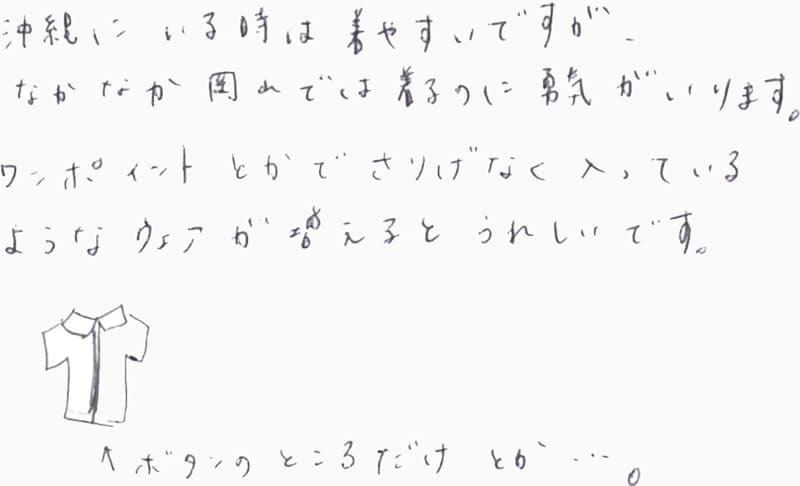 沖縄にいる時は着やすいですが、
なかなか では着るのに勇気がいります。
ワンポイントとかでさりげなく入っている
ようなウェアが増えるとうれしいです。
↑ボタンのところだけとか…。